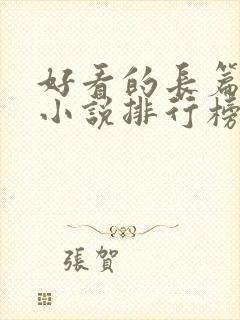 好看的長篇
小說排行榜
張賀